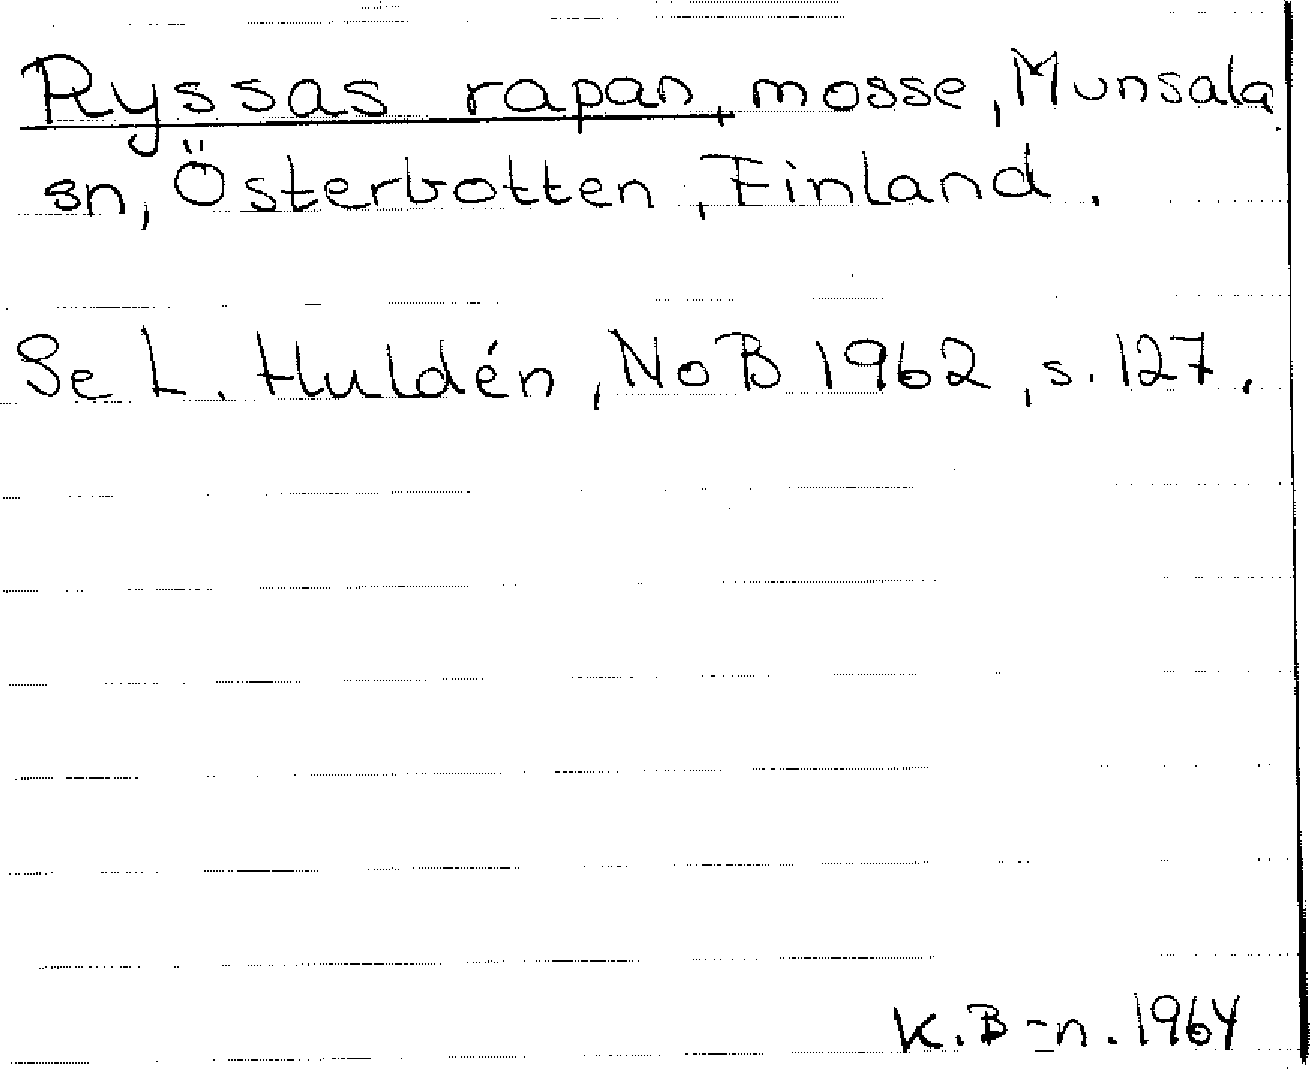 Ryssas rapan, mosse, Munsala
sn, Österbotten, Finland.
Se L. Huldén, NoB 1962, s. 127.
K.B-n. 1964